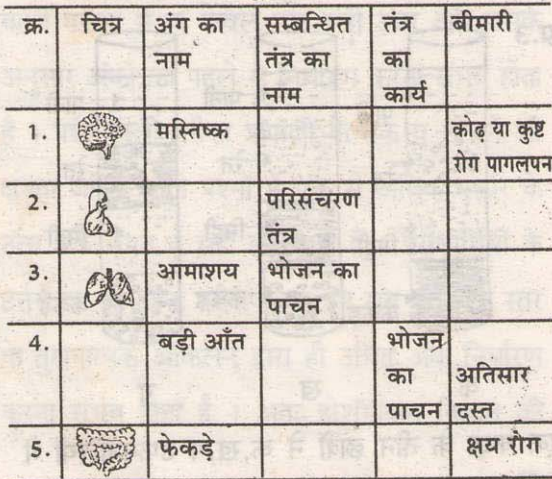 क्र. चित्र अंग का सम्बन्धित तंत्र बीमारी
नाम तंत्र का का
नाम कार्य
1. मस्तिष्क कोढ़ या कुष्ट
रोग पागलपन
2. परिसंचरण
तंत्र
3. आमाशय भोजन का
पाचन
4. बड़ी आँत भोजन
का अतिसार
पाचन दस्त
5. फेकड़े क्षय रोग